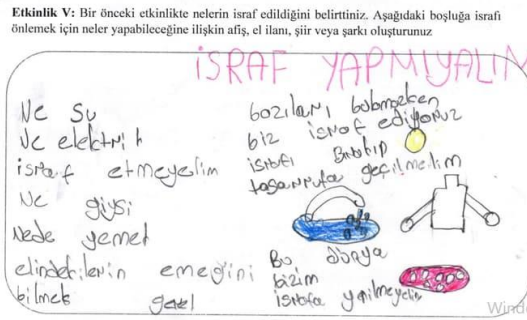 Etkinlik V: Bir önceki etkinlikte nelerin israf edildiğini belirttiniz. Aşağıdaki boşluğa israfı
önlemek için neler yapabileceğine ilişkin afiş, el ilanı, şiir veya şarkı oluşturunuz
İSRAF YAPMIYALIM
Ne su
Ne elektrik
israf etmeyelim
Ne giysi
Nede yemek
elindekilerin emeğini
bilmek güzel
bazıları bulamazken
biz israf ediyoruz
israfı bırakıp
tasarrufa geçilmelim
Bu dünya
bizim
israfa yenilmeyelim
Wind